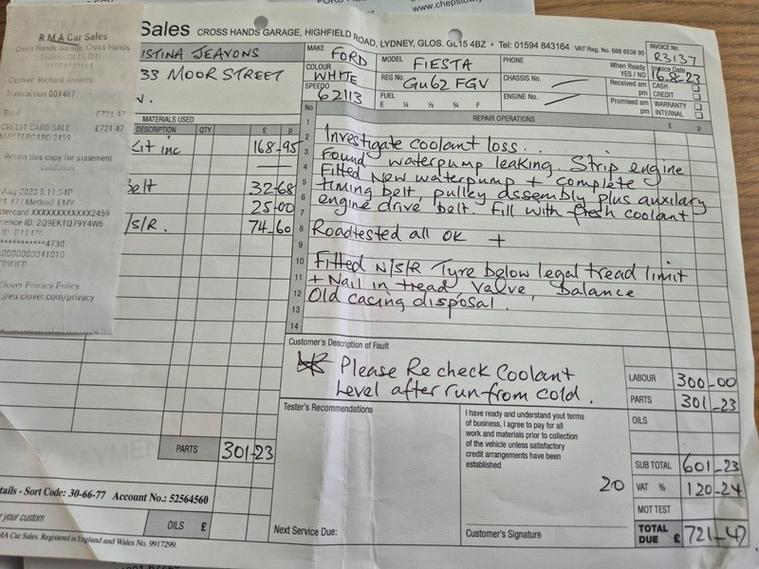 R M A Car Sales
Cross Hands Garage, Cross Hands
Cashier: Richard
Transaction 001467
Total £721.47
CREDIT CARD SALE £721.47
MASTERCARD 2459
Retain this copy for statement
validation
Aug 2023 5:11:51P
Method: EMV
XXXXXXXXXXXX2459
ID: 2Q9EKTQ79Y4W6
Clover Privacy Policy
://eu.clover.com/privacy
Sales CROSS HANDS GARAGE, HIGHFIELD ROAD, LYDNEY, GLOS. GL15 4BZ • Tel: 01594 843164 VAT Reg. No. 666 6538 90
INVOICE No. R3137
ISTINA JEAVONS
33 MOOR STREET
MAKE FORD
MODEL FIESTA
PHONE
When Ready YES / NO
Invoice Date 16.8.23
COLOUR WHITE
REG No. GU62 FGV
CHASSIS No.
Received am pm
CASH
CREDIT
SPEEDO 62113
FUEL E ¼ ½ ¾ F
ENGINE No.
Promised am pm
WARRANTY
INTERNAL
MATERIALS USED
DESCRIPTION QTY £ P
Kit inc 168-95
Belt 32-68
25-00
/S/R. 74-60
PARTS 301-23
No REPAIR OPERATIONS £ P
1
2 Investigate coolant loss..
3 Found waterpump leaking. Strip engine
4 Fitted New waterpump + complete
5 timing belt, pulley assembly plus auxilary
6 engine drive belt. Fill with fresh coolant
7
8 Roadtested all OK +
9
10 Fitted N/S/R Tyre below legal tread limit
11 + Nail in tread Valve, Balance
12 Old cacing disposal.
13
14
Customer's Description of Fault
Please Recheck Coolant
Level after run from cold.
LABOUR 300-00
PARTS 301-23
OILS
SUB TOTAL 601-23
20 VAT % 120-24
MOT TEST
TOTAL DUE £ 721-47
Tester's Recommendations
I have ready and understand yout terms
of business, I agree to pay for all
work and materials prior to collection
of the vehicle unless satisfactory
credit arrangements have been
established
Next Service Due:
Customer's Signature
tails - Sort Code: 30-66-77 Account No.: 52564560
your custom
OILS £
MA Car Sales. Registered in England and Wales No. 9917299.